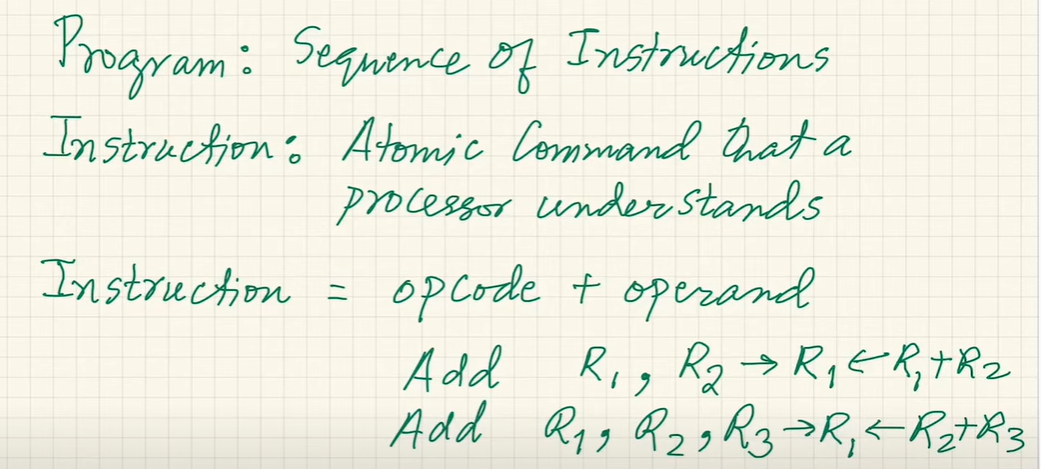 Program: Sequence of Instructions
Instruction: Atomic Command that a
processor understands
Instruction = opcode + operand
Add R₁, R₂ → R₁ ← R₁+R₂
Add R₁, R₂, R₃ → R₁ ← R₂+R₃